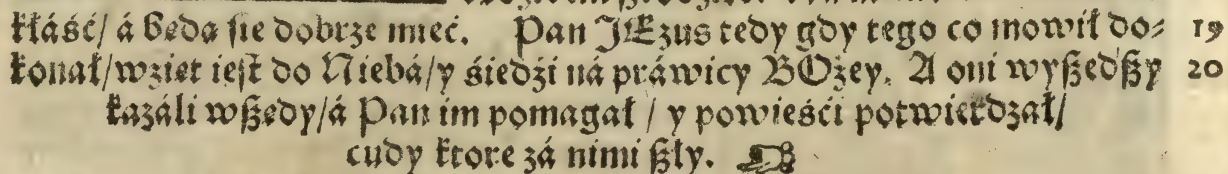 kłáść/ á będą się dobrze mieć. Pan JEzus tedy gdy tego co mowił do⸗ 19
konał/wzięt iest do Niebá/y śiedźi ná práwicy BOżey. A oni wyszedszy 20
kazáli wszędy/á Pan im pomagał / y powieśći potwierdzał/
cudy ktore zá nimi szły.